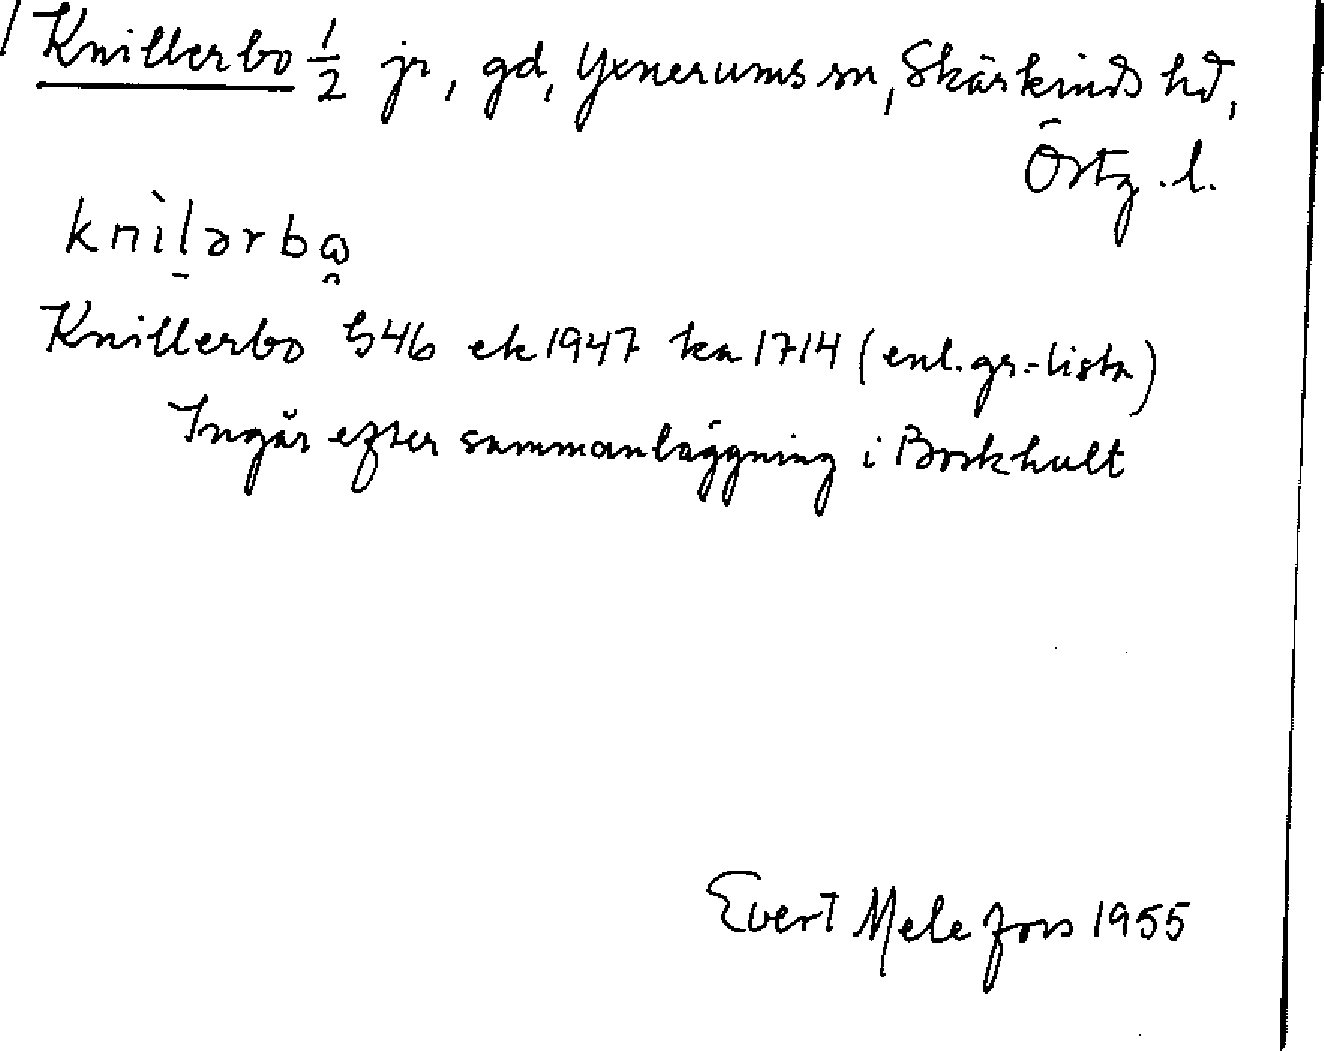 Knillerbo 1/2 jr, gd, Yxnerums sn, Skärkinds hd,
Östg. l.
knìḷərbω̯
Knillerbo h46 ek 1947 ka 1714 (enl. gr.-lista)
Ingår efter sammanläggning i Borkhult
Evert Melefors 1955